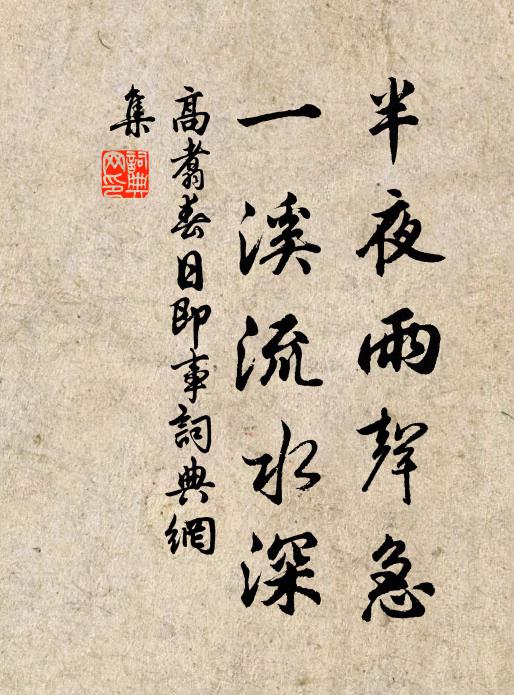 半夜雨聲急
一溪流水深
高翥春日即事詞典網
集
詞典
网印